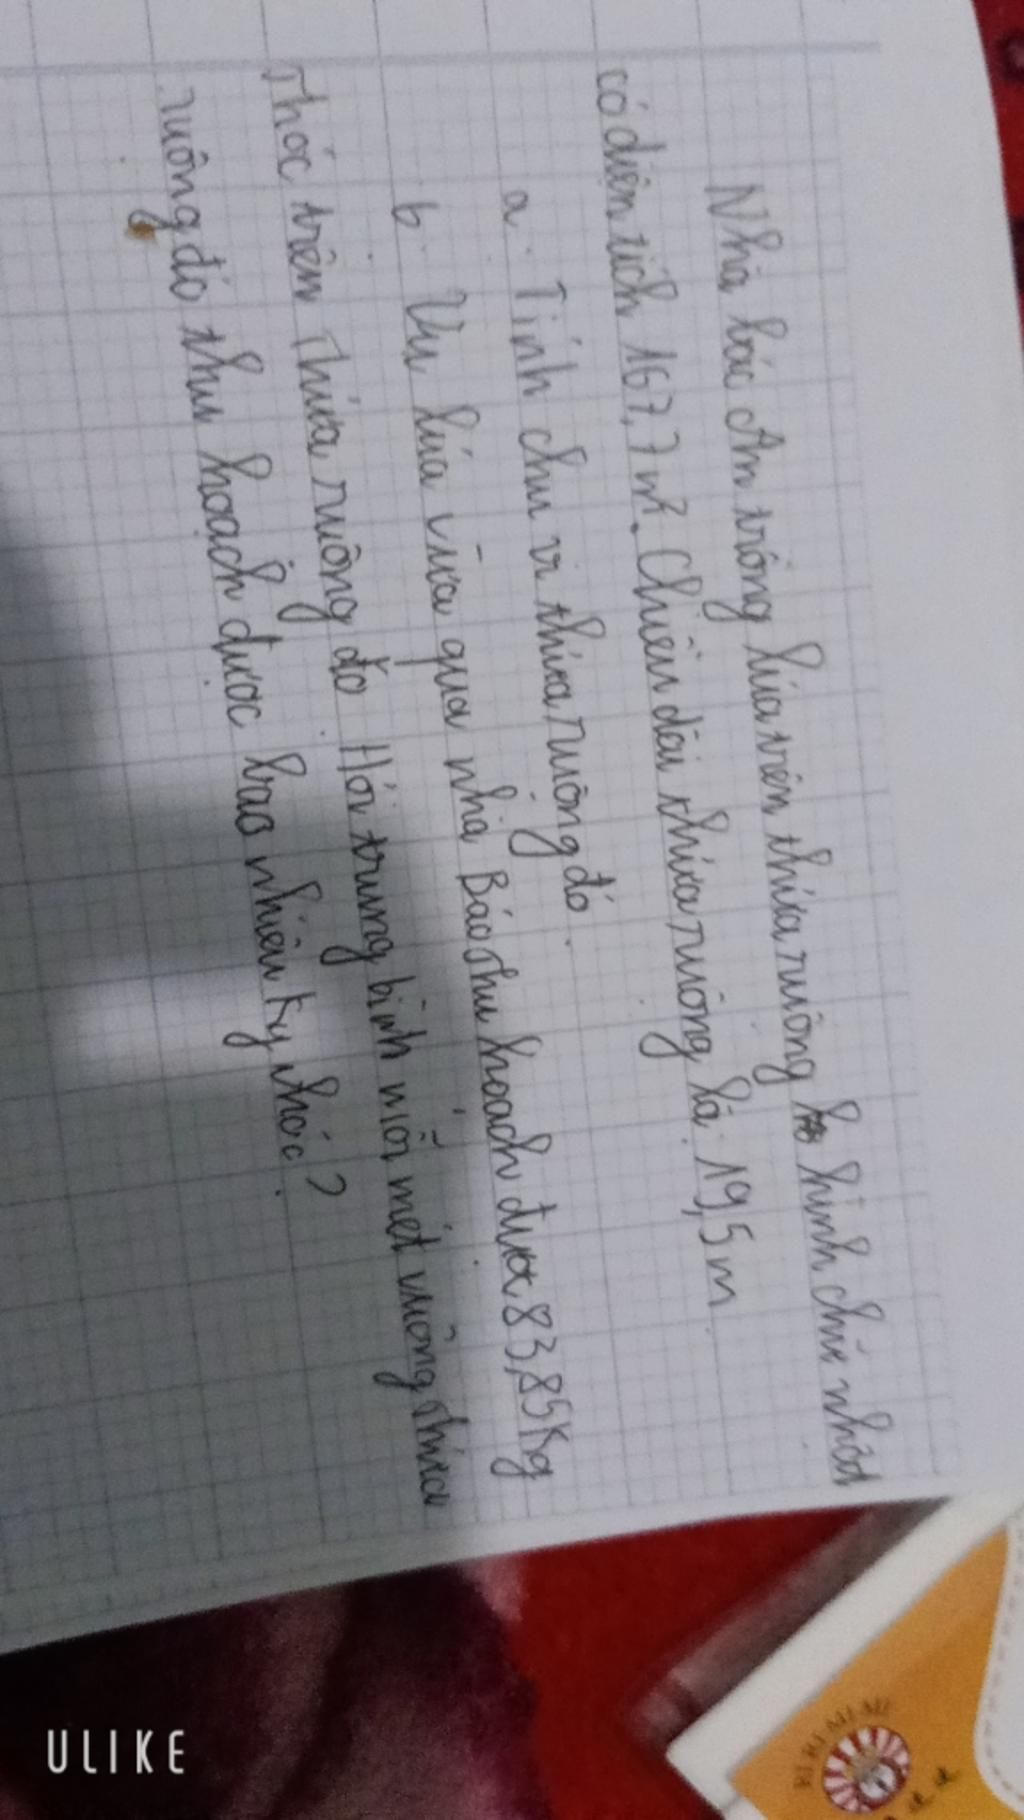 Nhà bác An trồng lúa trên thửa ruộng hình chữ nhật
có diện tích 167,7 m². Chiều dài thửa ruộng là 19,5m
a. Tính chu vi thửa ruộng đó.
b. Vụ lúa vừa qua nhà Bác thu hoạch được 83,85Kg
thóc trên thửa ruộng đó. Hỏi trung bình mỗi mét vuông thửa
ruộng đó thu hoạch được bao nhiêu Kg thóc?
ULIKE